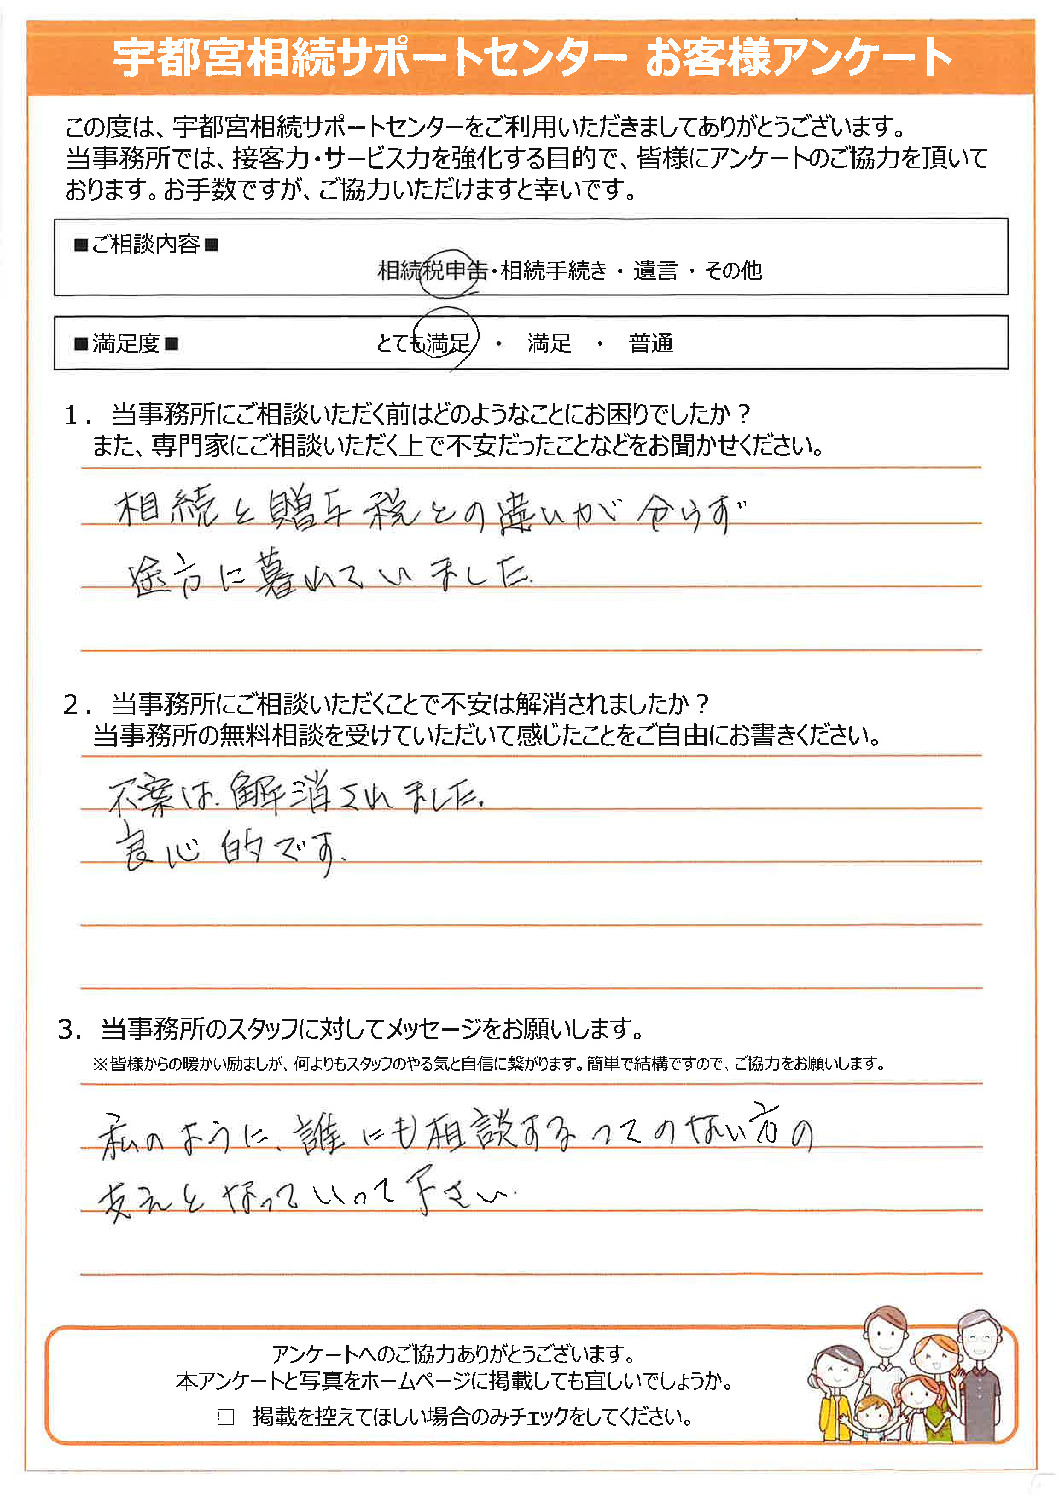 宇都宮相続サポートセンター お客様アンケート
この度は、宇都宮相続サポートセンターをご利用いただきましてありがとうございます。
当事務所では、接客力・サービス力を強化する目的で、皆様にアンケートのご協力を頂いて
おります。お手数ですが、ご協力いただけますと幸いです。
■ご相談内容■
相続税申告・相続手続き ・ 遺言 ・ その他
■満足度■ とても満足 ・ 満足 ・ 普通
1. 当事務所にご相談いただく前はどのようなことにお困りでしたか？
また、専門家にご相談いただく上で不安だったことなどをお聞かせください。
相続と贈与税との違いが分らず
途方に暮れていました.
2. 当事務所にご相談いただくことで不安は解消されましたか？
当事務所の無料相談を受けていただいて感じたことをご自由にお書きください。
不案は.解消されました.
良心的です.
3. 当事務所のスタッフに対してメッセージをお願いします。
※皆様からの暖かい励ましが、何よりもスタッフのやる気と自信に繋がります。簡単で結構ですので、ご協力をお願いします。
私のように、誰にも相談するつてのない方の
支えとなっていって下さい.
アンケートへのご協力ありがとうございます。
本アンケートと写真をホームページに掲載しても宜しいでしょうか。
□ 掲載を控えてほしい場合のみチェックをしてください。